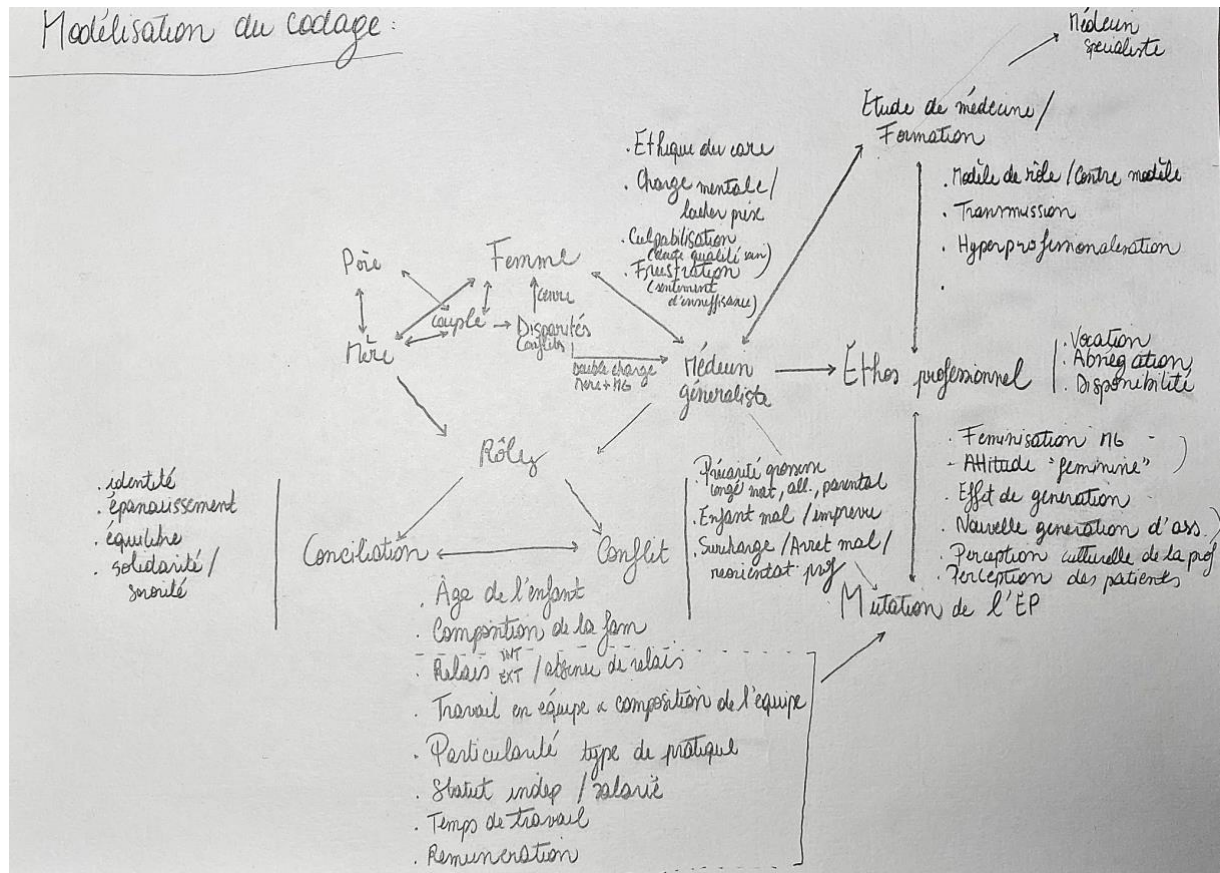 Modélisation du codage :
Médecin
spécialiste
Etude de médecine /
Formation
. Modèle de rôle / Contre modèle
. Transmission
. Hyperprofessionalisation
.
. Ethique du care
. Charge mentale /
lacher prise
. Culpabilisation
. Frustration
(sentiment
Père
Femme
couple
genre
Disparités
Conflits
Mère
Double charge
Mère + MG
Médecin
généraliste
Éthos professionnel
. Vocation
. Abnégation
. Disponibilité
Rôles
. identité
. épanouissement
. équilibre
. solidarité /
sororité
Conciliation
Conflit
. Précarité grossesse
congé mat, all., parental
. Enfant mal / imprévu
. Surcharge / Arret mal /
reorientat prof
. Feminisation MG -
- Attitude "feminine"
. Effet de generation
. Nouvelle generation d'ass.
. Perception culturelle de la prof
. Perception des patients
Mutation de l'ÉP
. Âge de l'enfant
. Composition de la fam
. Relais INT EXT / absence de relais
. Travail en équipe composition de l'équipe
. Particularité type de pratique
. Statut indep / salarié
. Temps de travail
. Remuneration